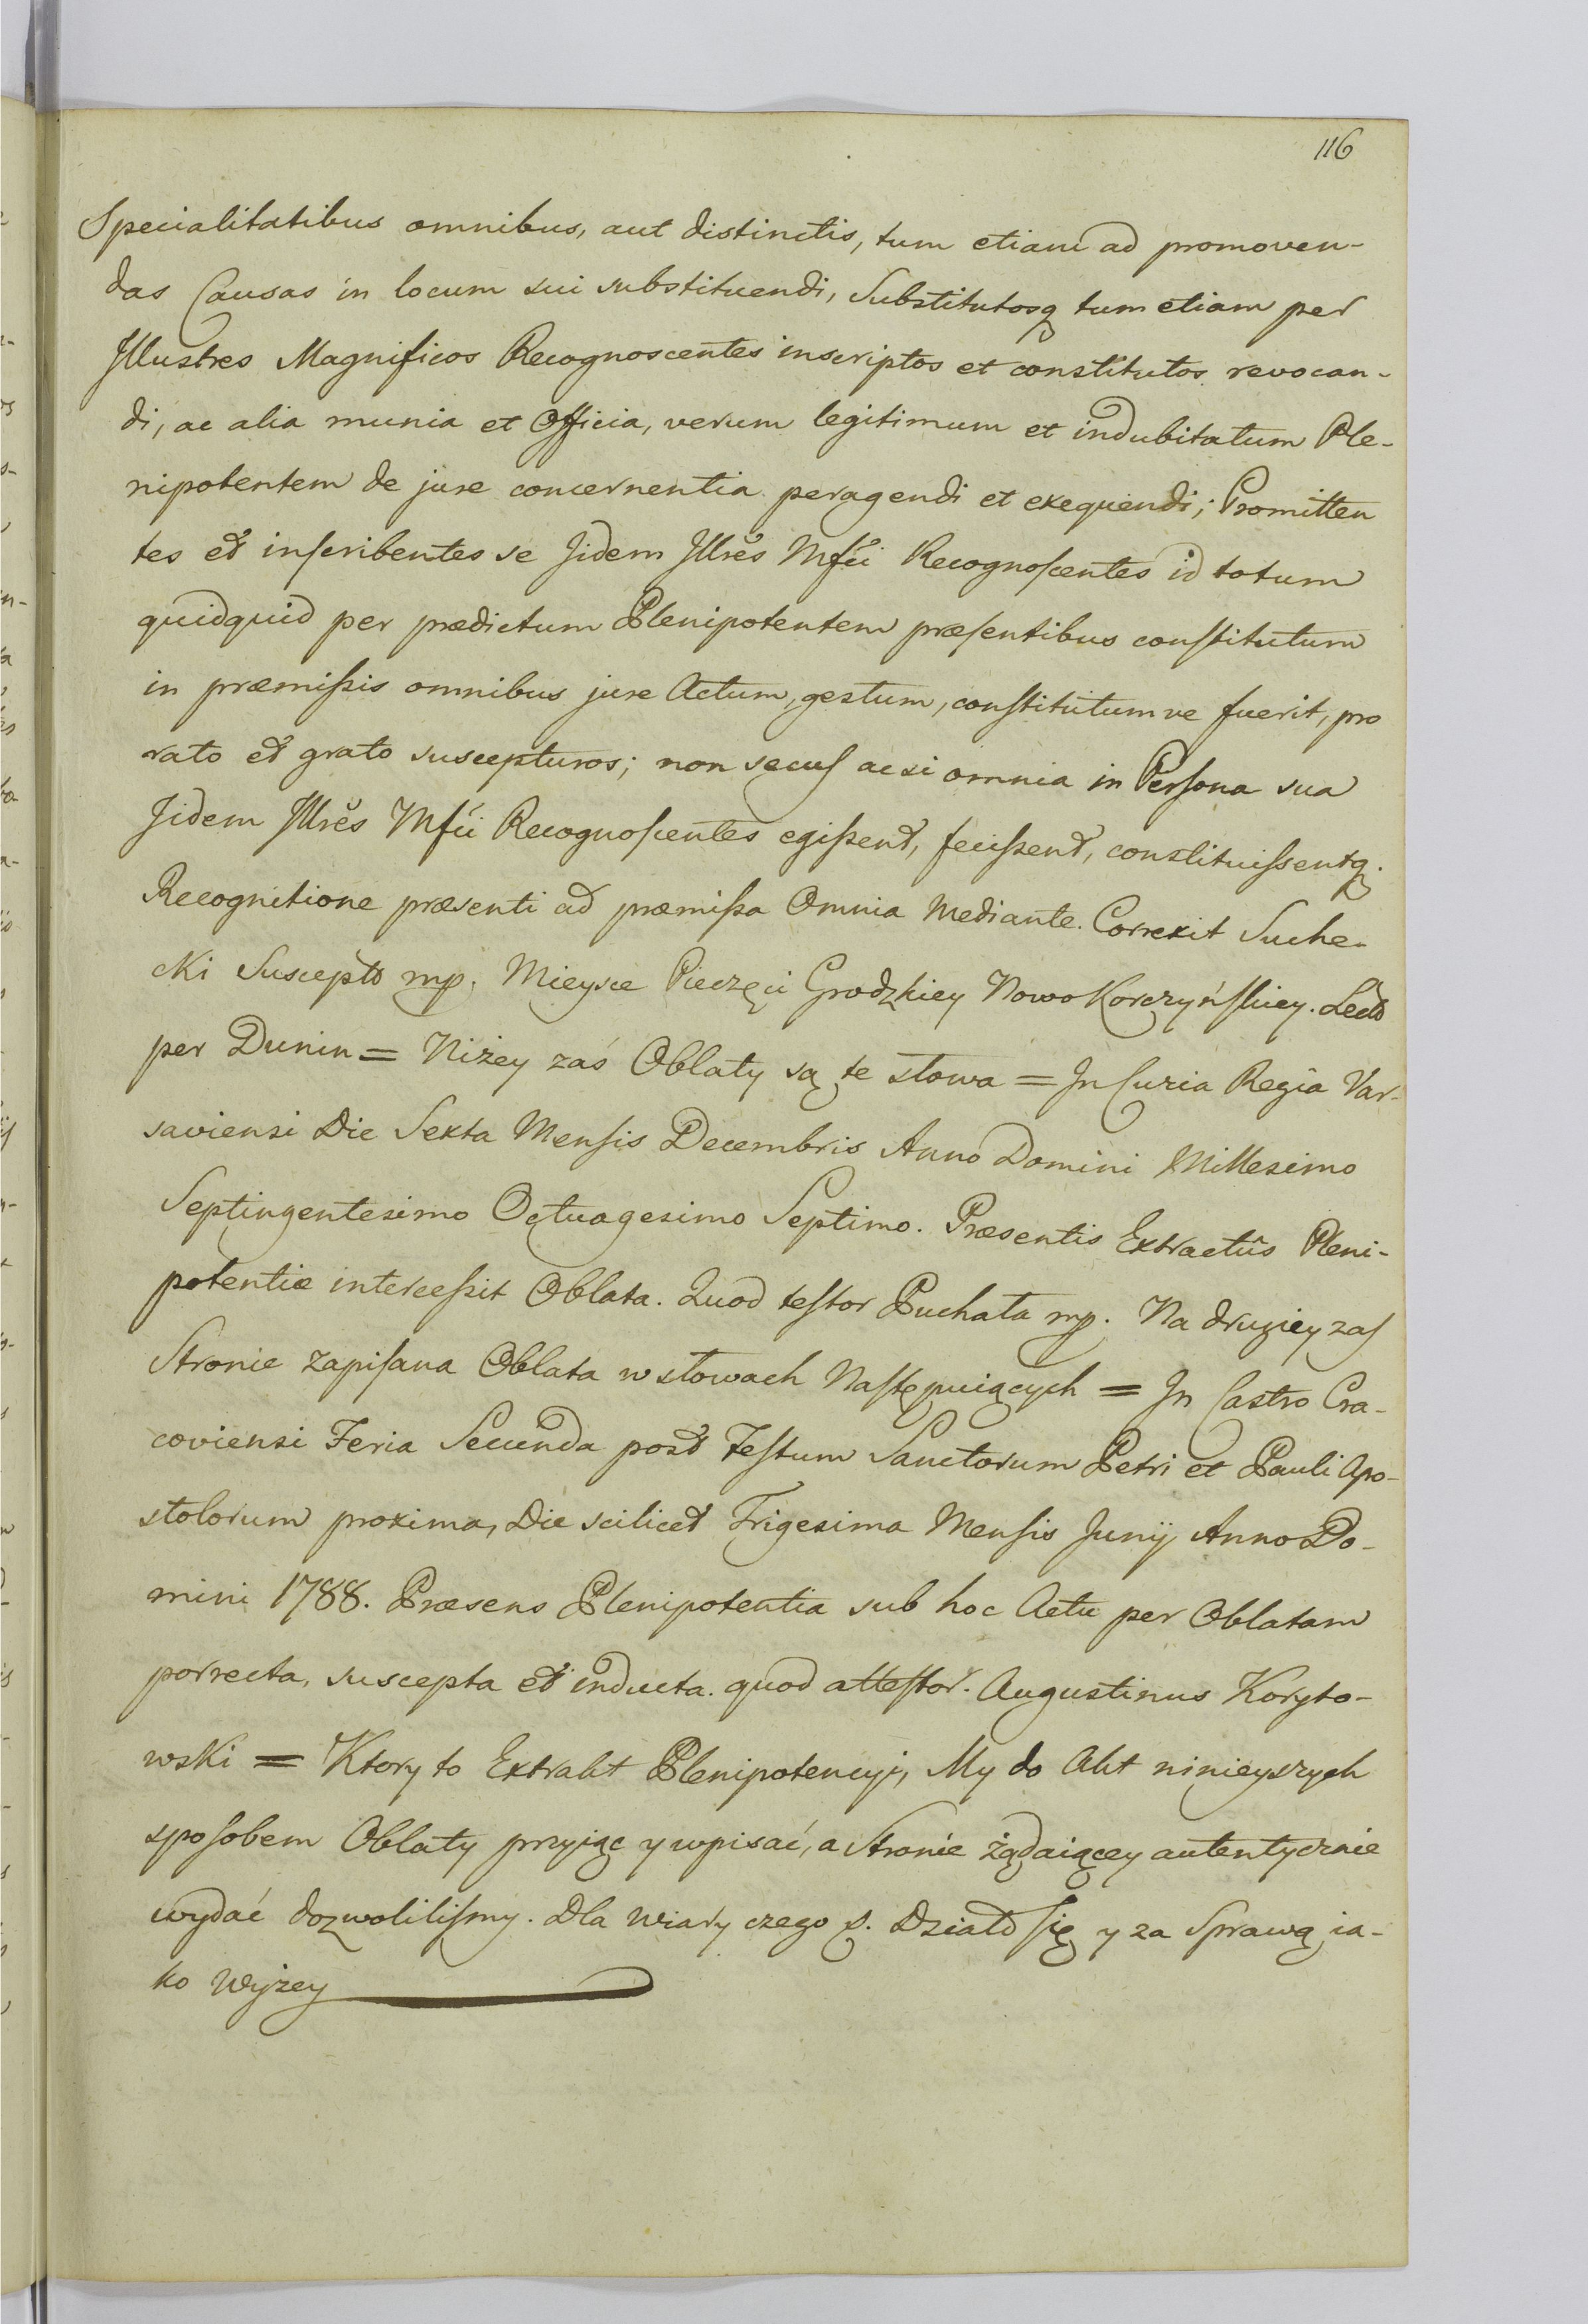 116
Specialitatibus omnibus, aut distinctis, tum etiam ad promoven-
das Causas in locum sui substituendi, Substitutosq tum etiam per
Illustres Magnificos Recognoscentes inscriptos et constitutos revocan-
di, ac alia munia et Officia, verum legitimum et indubitatum Ple-
nipotentem de jure concernentia peragendi et exequendi; Promitten
tes et inscribentes se Iidem Illrẽs Mfĩci Recognoscentes id totum
quidquid per prædictum Plenipotentem præsentibus constitutum
in præmissis omnibus jure Actum, gestum, constitutumve fuerit, pro
rato et grato suscepturos; non secus ac si omnia in Persona sua
Iidem Illrẽs Mfĩci Recognoscentes egissent, fecissent, constituissentq.
Recognitione præsenti ad præmissa Omnia Mediante. Correxit Suche-
cki Suscept mp. Mieysce Pieczęci Grodzkiey Nowo Korczyńskiey. Lect
per Dunin = Niżey zaś Oblaty są te słowa = In Curia Regia Var-
saviensi Die Sexta Mensis Decembris Anno Domini Millesimo
Septingentesimo Octuagesimo Septimo. Præsentis Extractûs Pleni-
potentiæ intercessit Oblata. Quod testor Puchała mp. Na drugiey zas
Stronie zapisana Oblata w słowach Następuiących = In Castro Cra-
coviensi Feria Secunda post Festum Sanctorum Petri et Pauli Apo-
stolorum proxima, Die scilicet Trigesima Mensis Junij Anno Do-
mini 1788. Præsens Plenipotentia sub hoc Actu per Oblatam
porrecta, suscepta et inducta. quod attestor. Augustinus Koryto-
wski = Ktory to Extrakt Plenipotencyi, My do Akt ninieyszych
sposobem Oblaty przyiąc y wpisać, a Stronie żądaiącey autentycznie
wydać dozwolilismy. Dla wiary czego &. Działo się y za Sprawą ia-
ko Wyżey